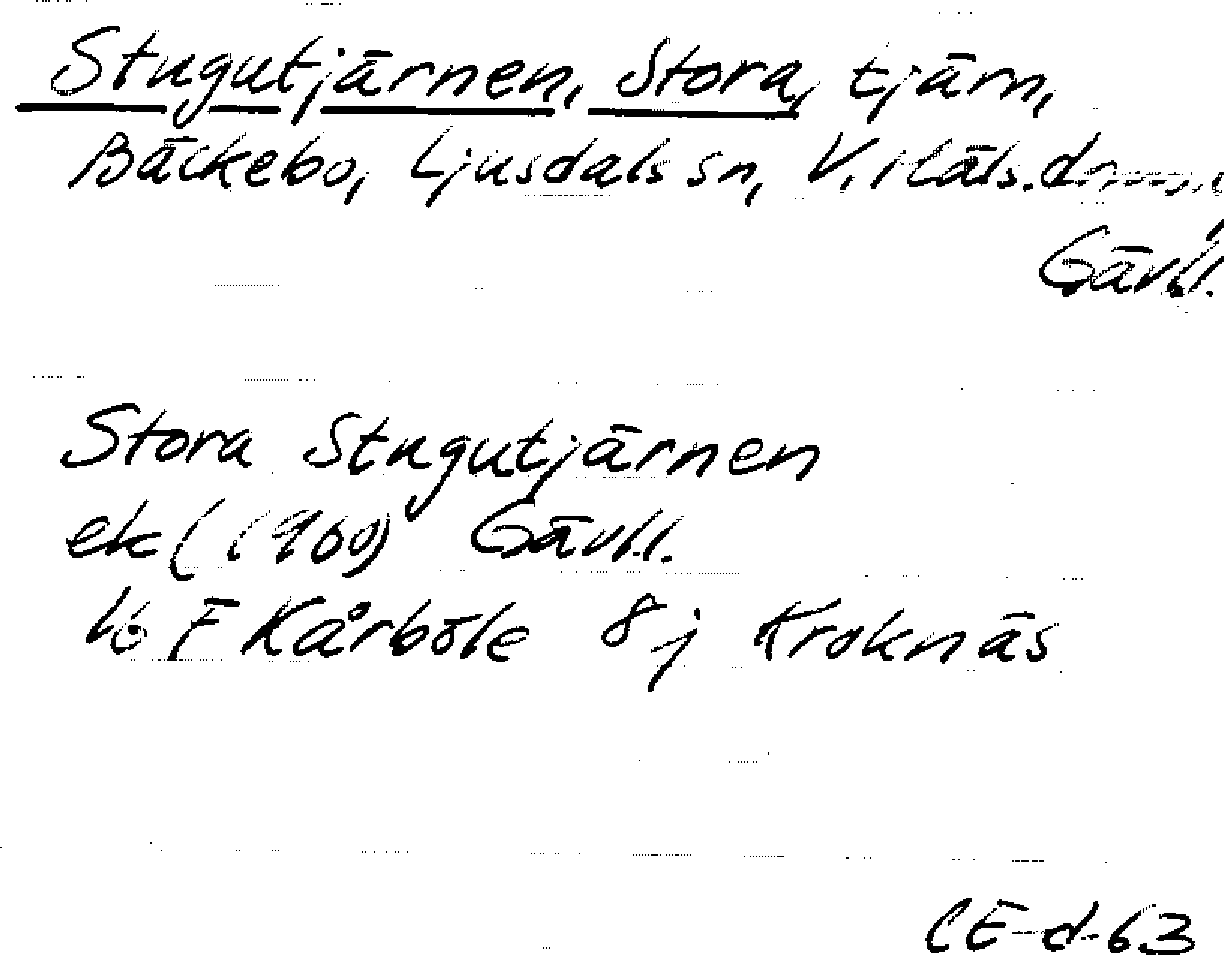 Stugutjärnen, Stora, tjärn,
Bäckebo, Ljusdals sn, V. Häls.
Gävl.l.
Stora Stugutjärnen
ek (1960) Gävl.l.
16 F Kårböle 8j Kroknäs
CE-d-63